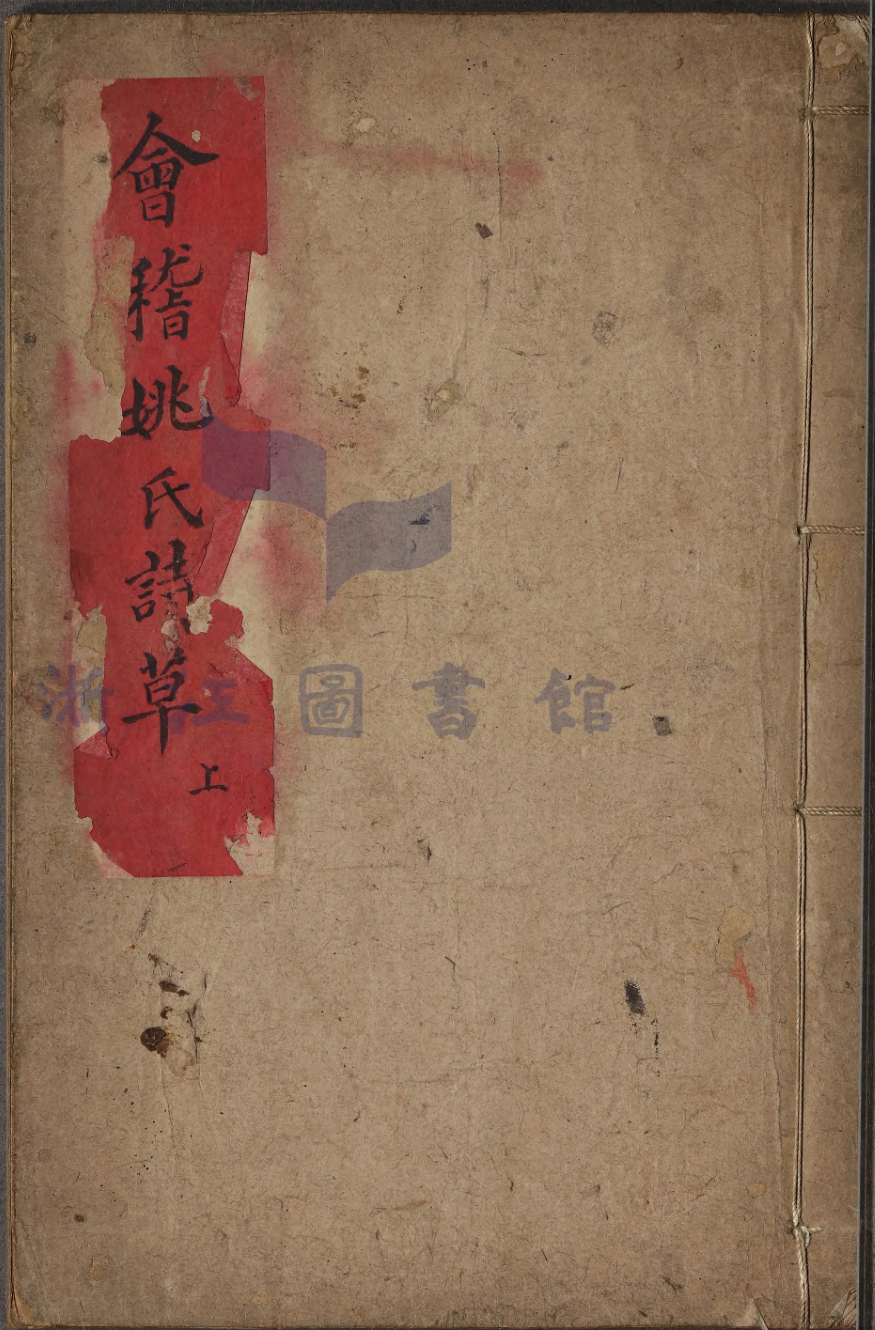 會稽姚氏詩草
上
浙江圖書館